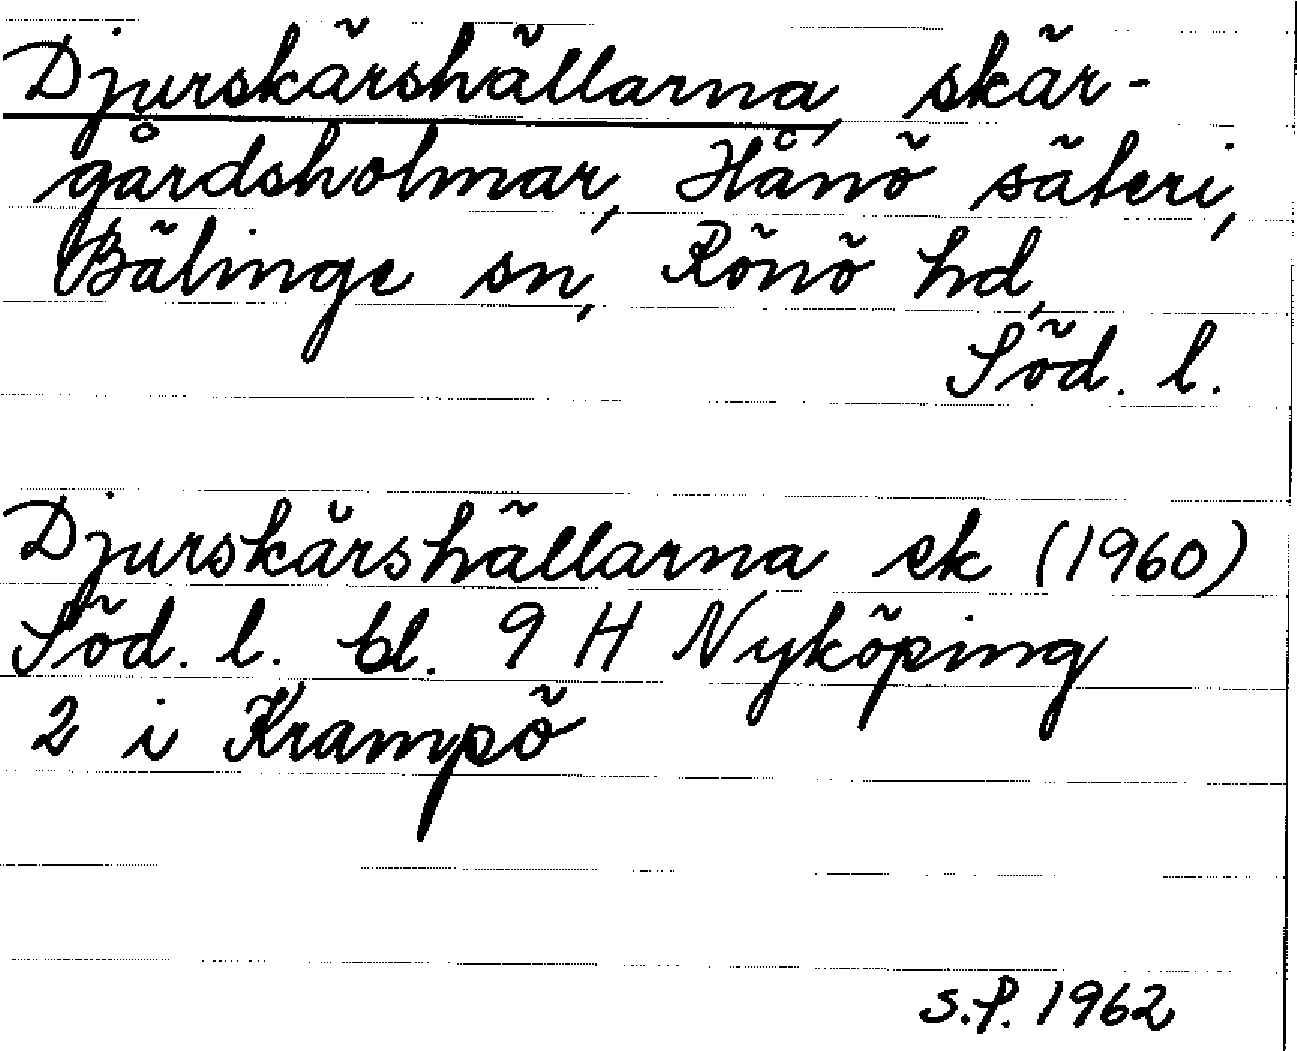 Djurskärshällarna, skär-
gårdsholmar, Hånö säteri,
Bälinge sn, Rönö hd,
Söd. l.
Djurskärshällarna ek (1960)
Söd. l. bl. 9 H Nyköping
2 i Krampö
S.P. 1962